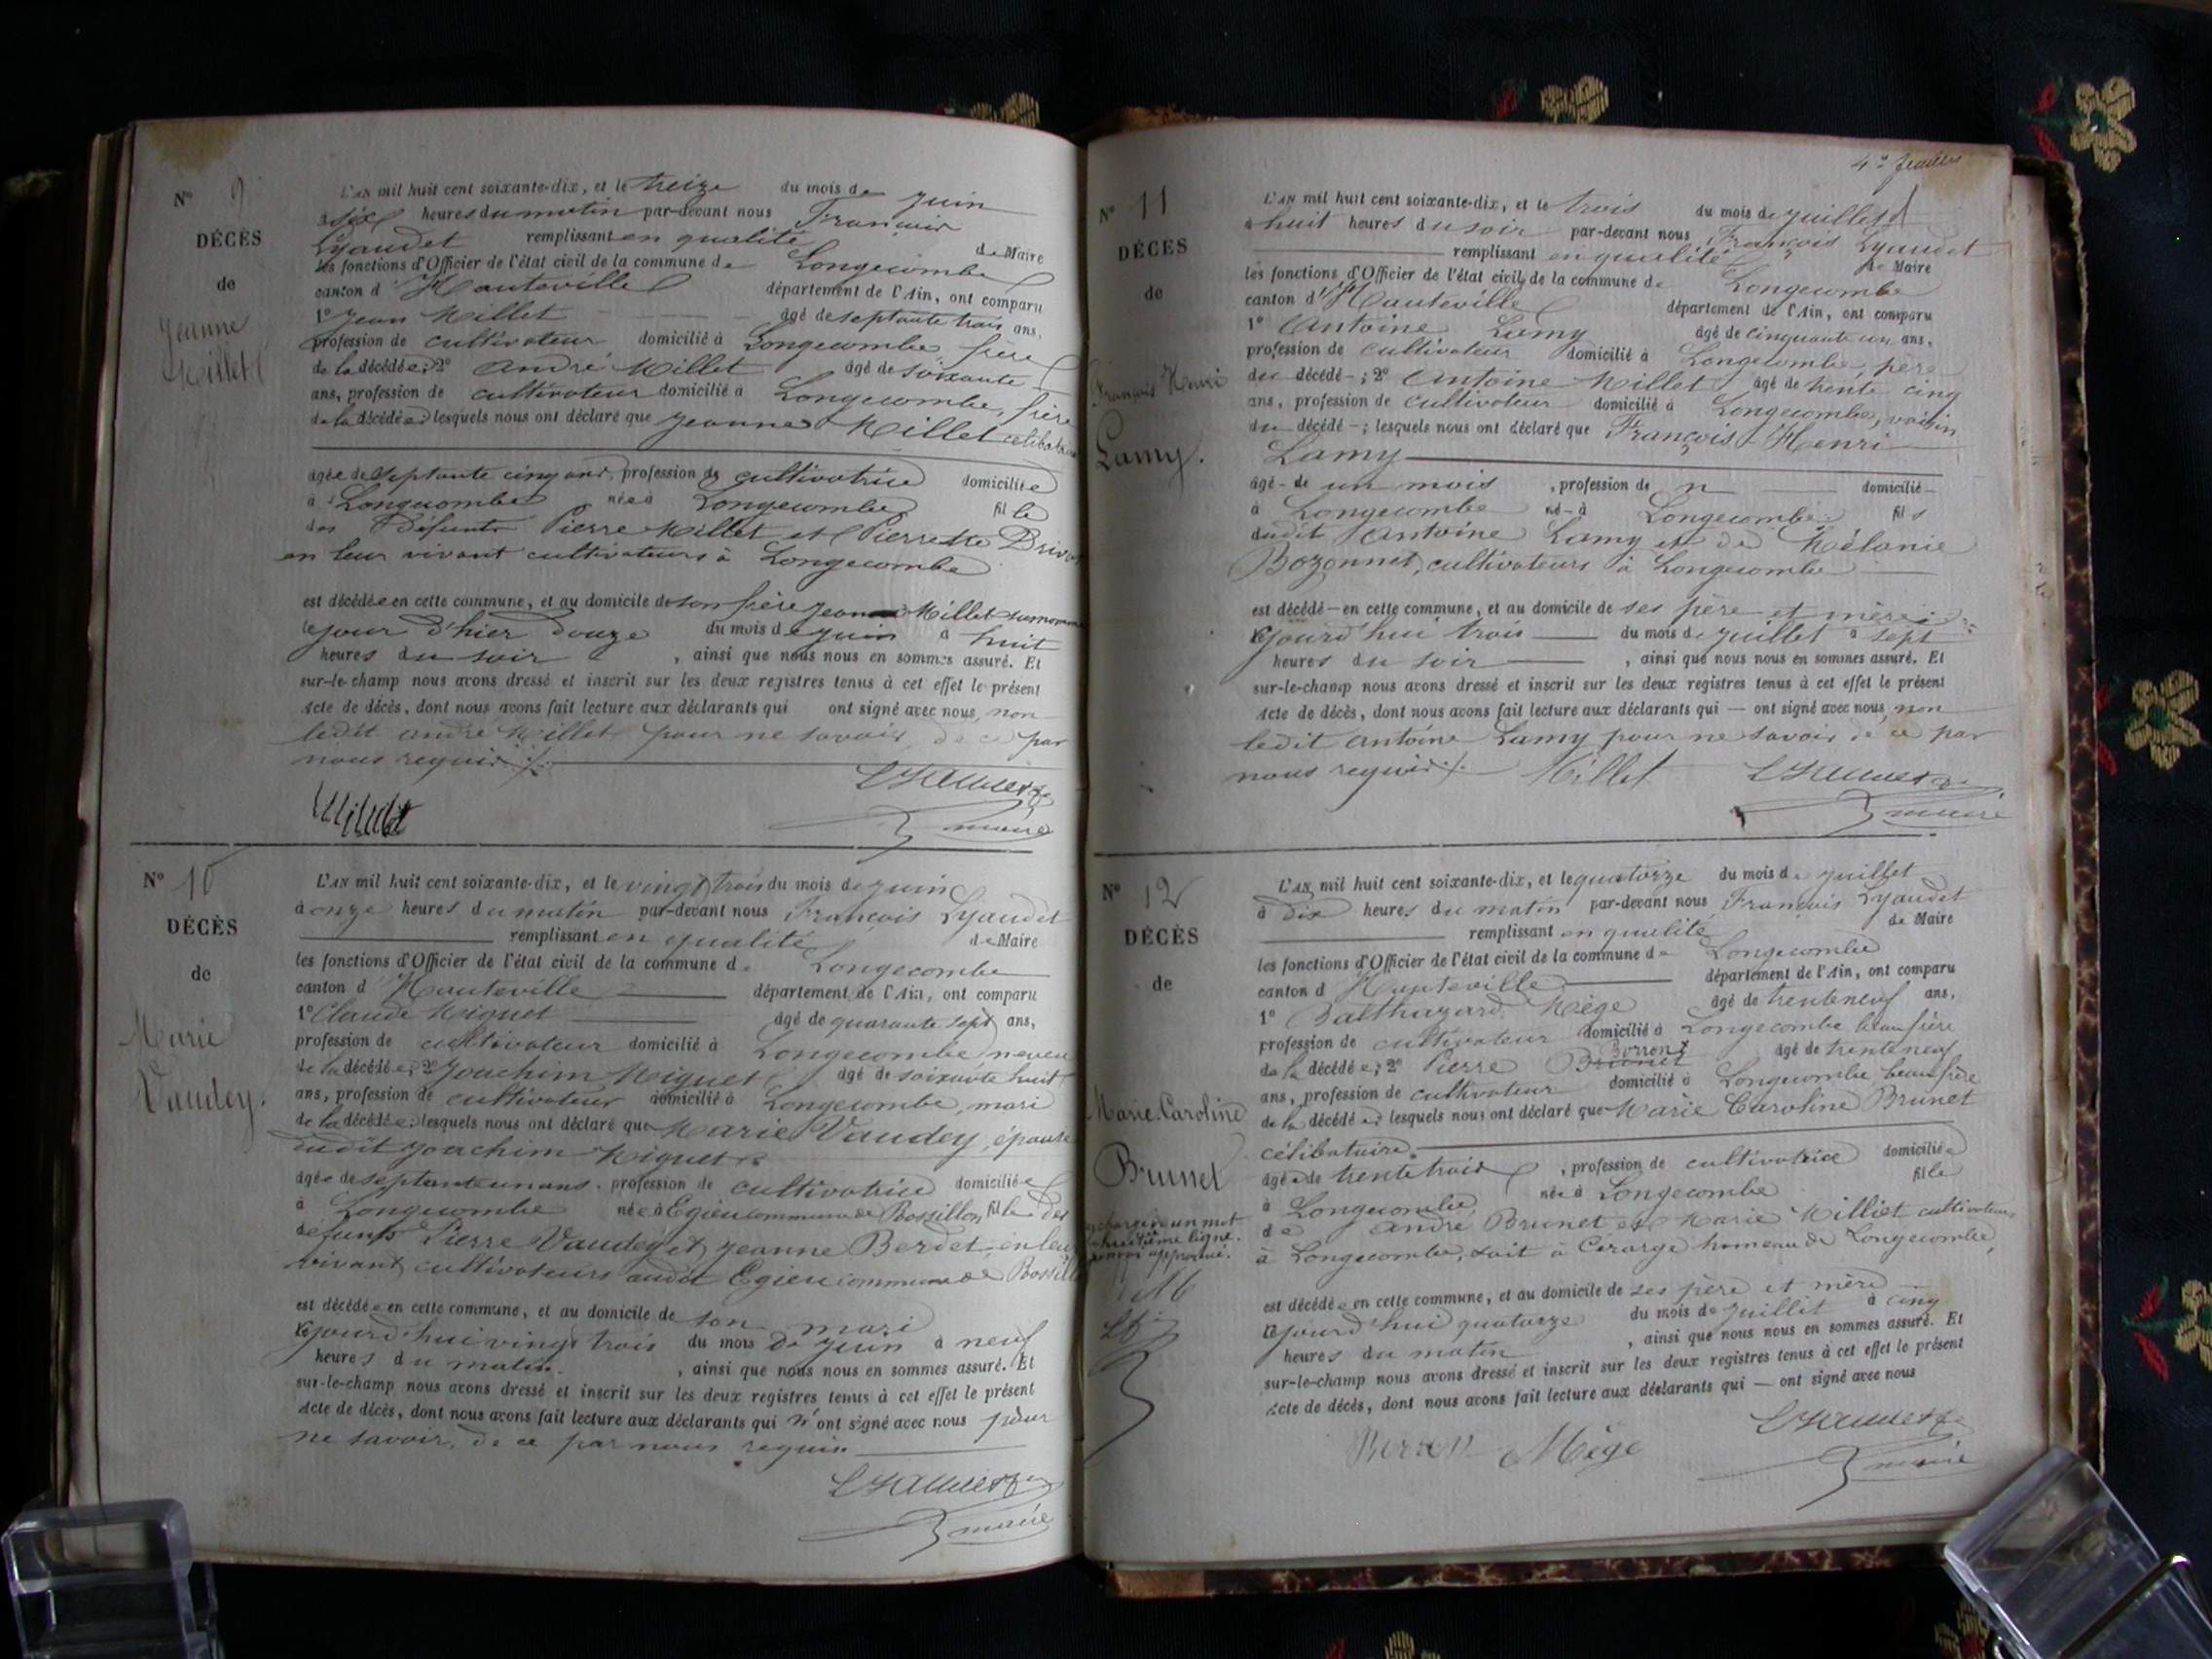 N° 9
DÉCÈS
de
Jeanne
Millet
L'AN mil huit cent soixante-dix, et le treize du mois de juin
à six heures du matin par-devant nous François
Lyaudet remplissant en qualité de Maire
les fonctions d'Officier de l'état civil de la commune de Longecombe
canton d'Hauteville département de l'Ain, ont comparu
1° Jean Millet âgé de septante trois ans,
profession de cultivateur domicilié à Longecombe, frère
de la décédée; 2° André Millet âgé de soixante
ans, profession de cultivateur domicilié à Longecombe, frère
de la décédée; lesquels nous ont déclaré que Jeanne Millet
âgée de septante cinq ans, profession de cultivatrice domiciliée
à Longecombe née à Longecombe fille
des défunts Pierre Millet et Pierrette
en leur vivant cultivateurs à Longecombe
est décédée en cette commune, et au domicile de son frère Jean Millet
le jour d'hier douze du mois de juin à huit
heures du soir, ainsi que nous nous en sommes assuré. Et
sur-le-champ nous avons dressé et inscrit sur les deux registres tenus à cet effet le présent
Acte de décès, dont nous avons fait lecture aux déclarants qui ont signé avec nous, non
ledit andré Millet pour ne savoir, de ce par
nous requis ./.
maire
N° 10
DÉCÈS
de
Marie
Vaudey.
L'AN mil huit cent soixante-dix, et le vingt trois du mois de juin
à onze heures du matin par-devant nous François Lyaudet
remplissant en qualité de Maire
les fonctions d'Officier de l'état civil de la commune de Longecombe
canton d'Hauteville département de l'Ain, ont comparu
1° Claude Miguet âgé de quarante sept ans,
profession de cultivateur domicilié à Longecombe neveu
de la décédée; 2° Joachim Miguet âgé de soixante huit
ans, profession de cultivateur domicilié à Longecombe, mari
de la décédée; lesquels nous ont déclaré que Marie Vaudey, épouse
dudit Joachim Miguet
âgée de septante un ans, profession de cultivatrice domiciliée
à Longecombe née à Egieu commune de Rossillon, fille des
défunts Pierre Vaudey et Jeanne Berdet, en leur
vivant cultivateurs audit Egieu commune de
est décédée en cette commune, et au domicile de son mari
cejourd'hui vingt trois du mois de juin à neuf
heures du matin, ainsi que nous nous en sommes assuré. Et
sur-le-champ nous avons dressé et inscrit sur les deux registres tenus à cet effet le présent
Acte de décès, dont nous avons fait lecture aux déclarants qui n'ont signé avec nous pour
ne savoir, de ce par nous requis
maire
N° 11
DÉCÈS
de
François Henri
Lamy.
L'AN mil huit cent soixante-dix, et le trois du mois de juillet
à huit heures du soir par-devant nous François Lyaudet
remplissant en qualité de Maire
les fonctions d'Officier de l'état civil de la commune de Longecombe
canton d'Hauteville département de l'Ain, ont comparu
1° Antoine Lamy âgé de cinquante un ans,
profession de cultivateur domicilié à Longecombe, père
du décédé; 2° Antoine Millet âgé de trente cinq
ans, profession de cultivateur domicilié à Longecombe, voisin
du décédé; lesquels nous ont déclaré que François-Henri
Lamy
âgé de un mois, profession de n domicilié
à Longecombe né à Longecombe fils
dudit Antoine Lamy et de Mélanie
Bozonnet, cultivateurs à Longecombe
est décédé en cette commune, et au domicile de ses père et mère
cejourd'hui trois du mois de juillet à sept
heures du soir, ainsi que nous nous en sommes assuré. Et
sur-le-champ nous avons dressé et inscrit sur les deux registres tenus à cet effet le présent
Acte de décès, dont nous avons fait lecture aux déclarants qui ont signé avec nous, non
ledit Antoine Lamy pour ne savoir de ce par
nous requis ./. Millet
maire
N° 12
DÉCÈS
de
Marie-Caroline
Brunet
L'AN mil huit cent soixante-dix, et le quatorze du mois de juillet
à dix heures du matin par-devant nous François Lyaudet
remplissant en qualité de Maire
les fonctions d'Officier de l'état civil de la commune de Longecombe
canton d'Hauteville département de l'Ain, ont comparu
1° Balthazard Mège âgé de trente neuf ans,
profession de cultivateur domicilié à Longecombe beau frère
de la décédée; 2° Pierre Brunet Berron âgé de trente neuf
ans, profession de cultivateur domicilié à Longecombe, beau frère
de la décédée; lesquels nous ont déclaré que Marie Caroline Brunet
célibataire
âgée de trente trois, profession de cultivatrice domiciliée
à Longecombe née à Longecombe fille
de André Brunet et Marie Milliet cultivateurs
à Longecombe, soit à Cerarge hameau de Longecombe,
est décédée en cette commune, et au domicile de ses père et mère
cejourd'hui quatorze du mois de juillet à cinq
heures du matin, ainsi que nous nous en sommes assuré. Et
sur-le-champ nous avons dressé et inscrit sur les deux registres tenus à cet effet le présent
Acte de décès, dont nous avons fait lecture aux déclarants qui ont signé avec nous
Berron Mège
maire